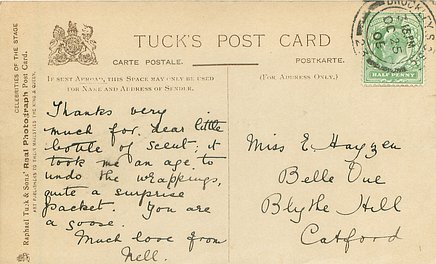 TUCK'S POST CARD
CARTE POSTALE.
POSTKARTE.
IF SENT ABROAD, THIS SPACE MAY ONLY BE USED
FOR NAME AND ADDRESS OF SENDER.
(FOR ADDRESS ONLY.)
CELEBRITIES OF THE STAGE
Raphael Tuck & Sons' Real Photograph Post Card.
ART PUBLISHERS TO THEIR MAJESTIES THE KING & QUEEN.
Thanks very
much for dear little
bottle of scent; it
took me an age to
undo the wrappings,
quite a surprise
packet. You are
a goose.
Much love from
Nell.
Miss E.
Belle Vue
Blythe Hill
Catford
BROCKLEY S.
HALF PENNY